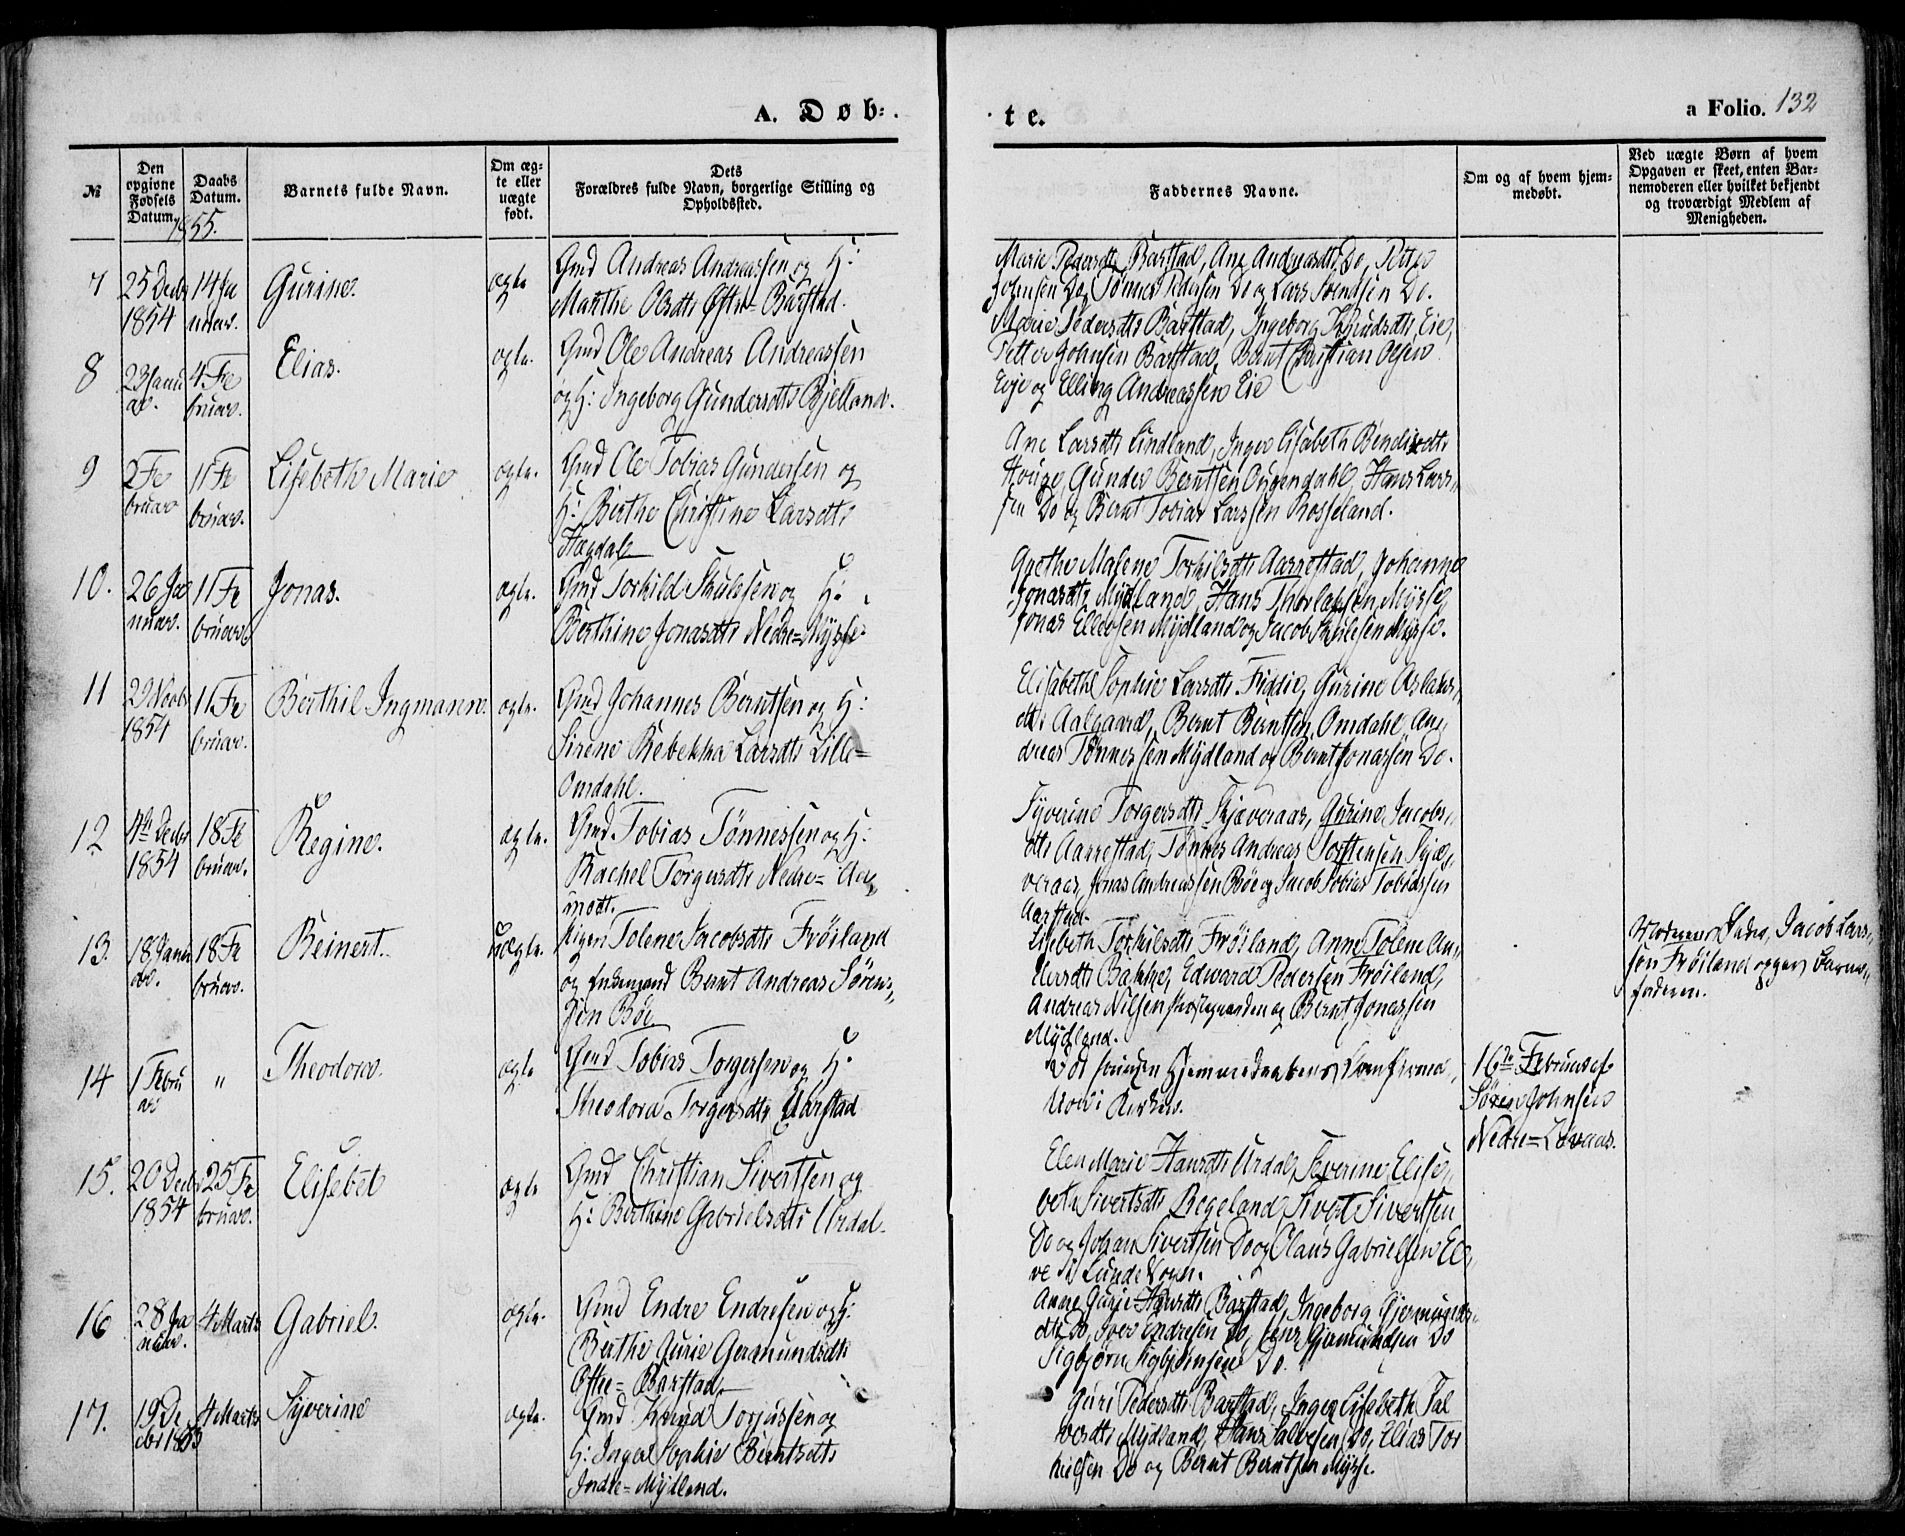 A. Døb=
te.
a Folio. 132
№
Den opgivne Fødsels Datum.
Daabs Datum.
1855.
Barnets fulde Navn.
Om ægte eller uægte født.
Dets Forældres fulde Navn, borgerlige Stilling og Opholdssted.
Faddernes Navne.
Om og af hvem hjemmedøbt.
Ved uægte Børn af hvem Opgaven er skeet, enten Barnemoderen eller hvilket bekjendt og troværdigt Medlem af Menigheden.
7
25 Decbr 1854
14 Januar.
Gurine.
ægte
Gmd Andreas Andreassen og H:
Marthe Olsdtr Øftre=Barstad.
Marie Pedersdtr Barstad, Ane Andreasdtr Do, Petter
Johnsen Do, Tønnes Pedersen Do og Lars Svendsen Do.
8
23 Januar.
4 Februar.
Elias.
ægte.
Gmd Ole Andreas Andreassen
og H: Ingeborg Gundersdtr Bjelland.
Marie Pedersdtr Barstad, Ingeborg Knudsdtr Eie,
Petter Johnsen Barstad, Bernt Christian Olsen
Eie og Elling Andreassen Eie
9
2 Februar
11 Februar.
Lisebeth Marie
ægte.
Gmd Ole Tobias Gundersen og
H: Berthe Christine Larsdtr
Hægdal
Ane Larsdtr Lindland, Inger Lisabeth Bendixdtr
Houge, Gunder Berntsen Øygendahl, Hans Lars,,
sen Do og Bernt Tobias Larssen Rosseland.
10.
26 Januar.
11 Februar
Jonas.
ægte.
Gmd Torkild Skulesen og H:
Berthine Jonasdtr Nedre=Mysse.
Grethe Malene Torkilsdtr Aarrestad, Johanne
Jonasdtr Mydland, Hans Thorlaksen Mysse,
Jonas Ellevsen Mydland og Jacob Skulesen Mysse.
11
29 Novbr 1854
11 Februar.
Berthil Ingmann.
ægte.
Gmd Johannes Berntsen og H:
Sirene Rebekka Larsdtr Lille=
Omdahl.
Elisabeth Sophie Larsdtr Fiddie, Gurine Aslaks,,
dtr Aalgaard, Bernt Berntsen Omdahl, An,,
dreas Tønnessen Mydland og Bernt Jonassen Do.
12
4de Decbr 1854
18 Februar.
Regine.
ægte.
Gmd Tobias Tønnessen og H:
Rachel Torgersdtr Nedre=Aa,,
modt.
Syverine Torgersdtr Skjæveraas, Gurine Jacobs,,
dtr Aarrestad, Tønnes Andreas Torstensen Skjæ,,
veraas, Jonas Andreassen Bøe og Jacob Tobias Tobiassen
Aarstad.
13.
18 Januar.
18 Februar.
Reinert.
uægte.
Pigen Tolene Jacobsdtr Frøiland
og Enkemand Bernt Andreas Søren,,
sen Bøe
Lisebeth Torkilsdtr Frøiland, Anne Tolene An,,
dersdtr Bakke, Edward Pedersen Frøiland,
Andreas Nilsen Præstegaarden og Bernt Jonassen
Mydland.
Moderens Fader, Jacob Lars,,
sen Frøiland opgav Barne,,
faderen.
14
1 Februar
"
Theodora.
ægte
Gmd Tobias Torgersen og H:
Theodora Torgersdtr Aarstad
Død forinden Hjemmedaabens Confirma,,
tion i Kirken.
16de Februar af
Søren Johnsen
Nedre=Løvaas.
15.
20 Decbr 1854
25 Februar.
Elisebet
ægte
Gmd Christian Sivertsen og
H: Berthine Gabrielsdtr Urdal.
Elen Marie Hansdtr Urdal, Severine Elise,,
beth Sivertsdtr Regeland, Sivert Sivertsen
Do og Johan Sivertsen Do og Claus Gabrielsen El,,
ve i Lunde Sogn.
16
28 Januar.
4 Marts
Gabriel.
ægte.
Gmd Endre Endresen og H:
Berthe Gurie Germundsdtr
Øftre=Barstad.
Anne Gurie Hansdtr Barstad, Ingeborg Gjermunds,,
dtr Do, Iver Endresen Do, Lars Gjermundsen Do
Sigbjørn Sigbjørnsen Do.
17.
19 Decbr 1853
4 Marts
Syverine
ægte.
Gmd Knud Torjussen og
H: Inger Sophie Berntsdtr
Indre=Mydland.
Guri Pedersdtr Barstad, Inger Lisebeth Sal
vesdtr Mydland, Hans Salvesen Do, Elias Tor
kielsen Do og Bernt Berntsen Mysse.